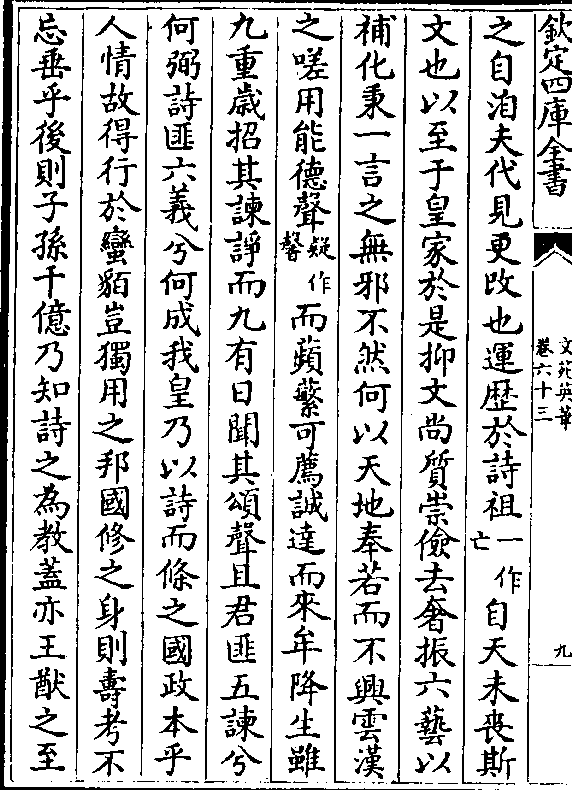 欽定四庫全書
文苑英華
卷六十三
九
之自洎夫代見更改也運歴於詩祖一作亡自天未喪斯
文也以至于皇家於是抑文尚質崇儉去奢振六藝以
補化秉一言之無邪不然何以天地奉若而不興雲漢
之嗟用能德聲疑作馨而蘋蘩可薦誠達而來牟降生雖
九重歳招其諫諍而九有日聞其頌聲且君匪五諫兮
何弼詩匪六義兮何成我皇乃以詩而條之國政本乎
人情故得行於蠻貊豈獨用之邦國修之身則壽考不
忘垂乎後則子孫千億乃知詩之為教蓋亦王猷之至